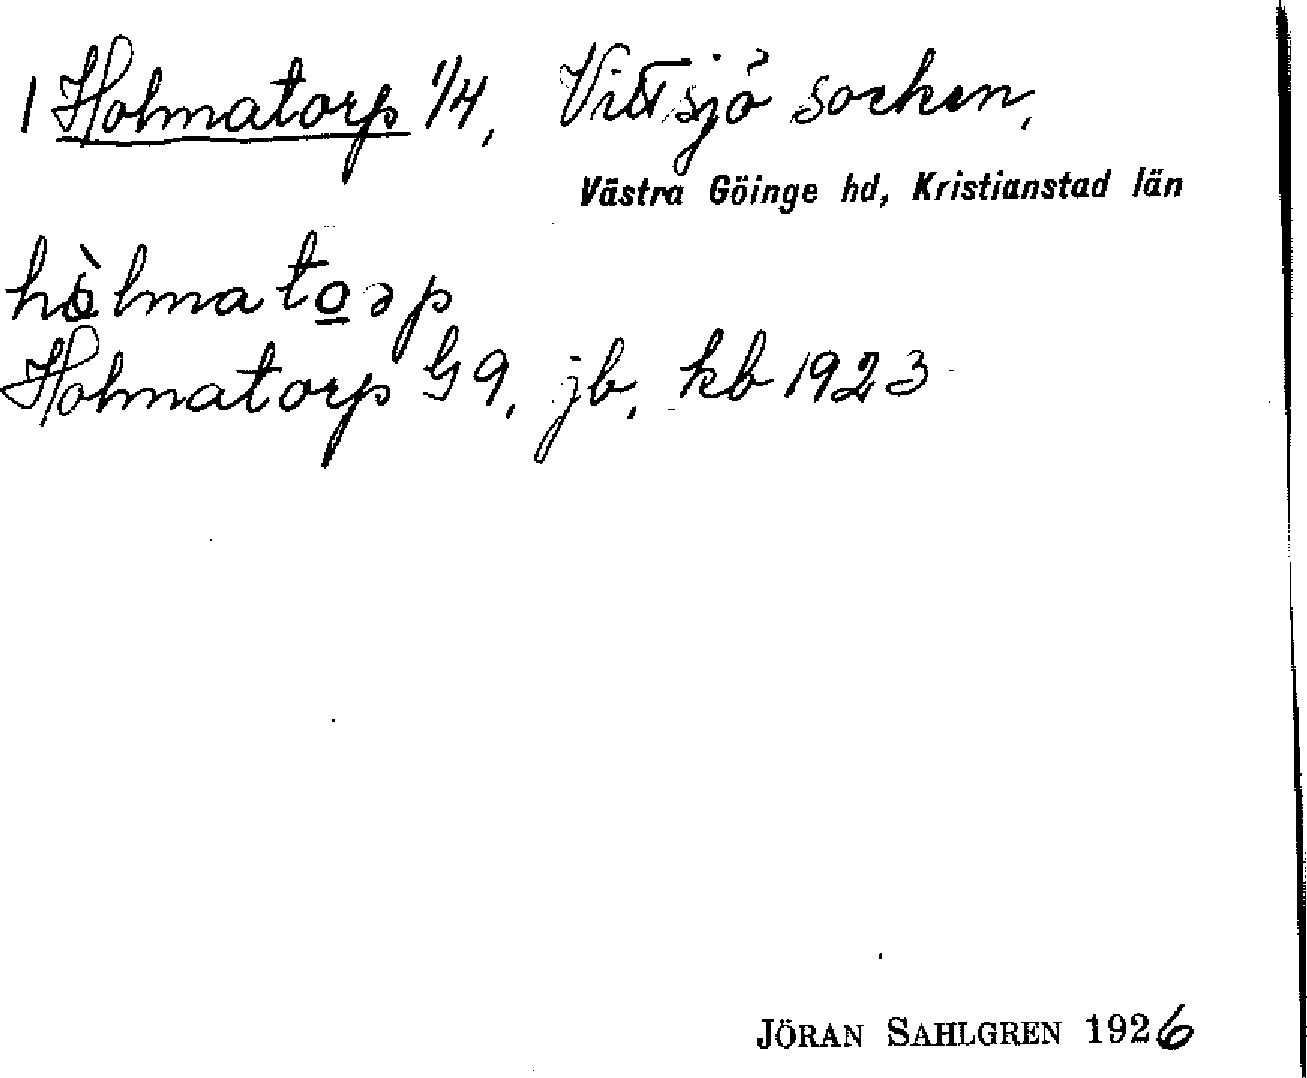 1 Holmatorp 1/4, Vittsjö socken,
Västra Göinge hd, Kristianstad län
hòlmatoəp
Holmatorp G9, jb, kb 1923
JÖRAN SAHLGREN 1926